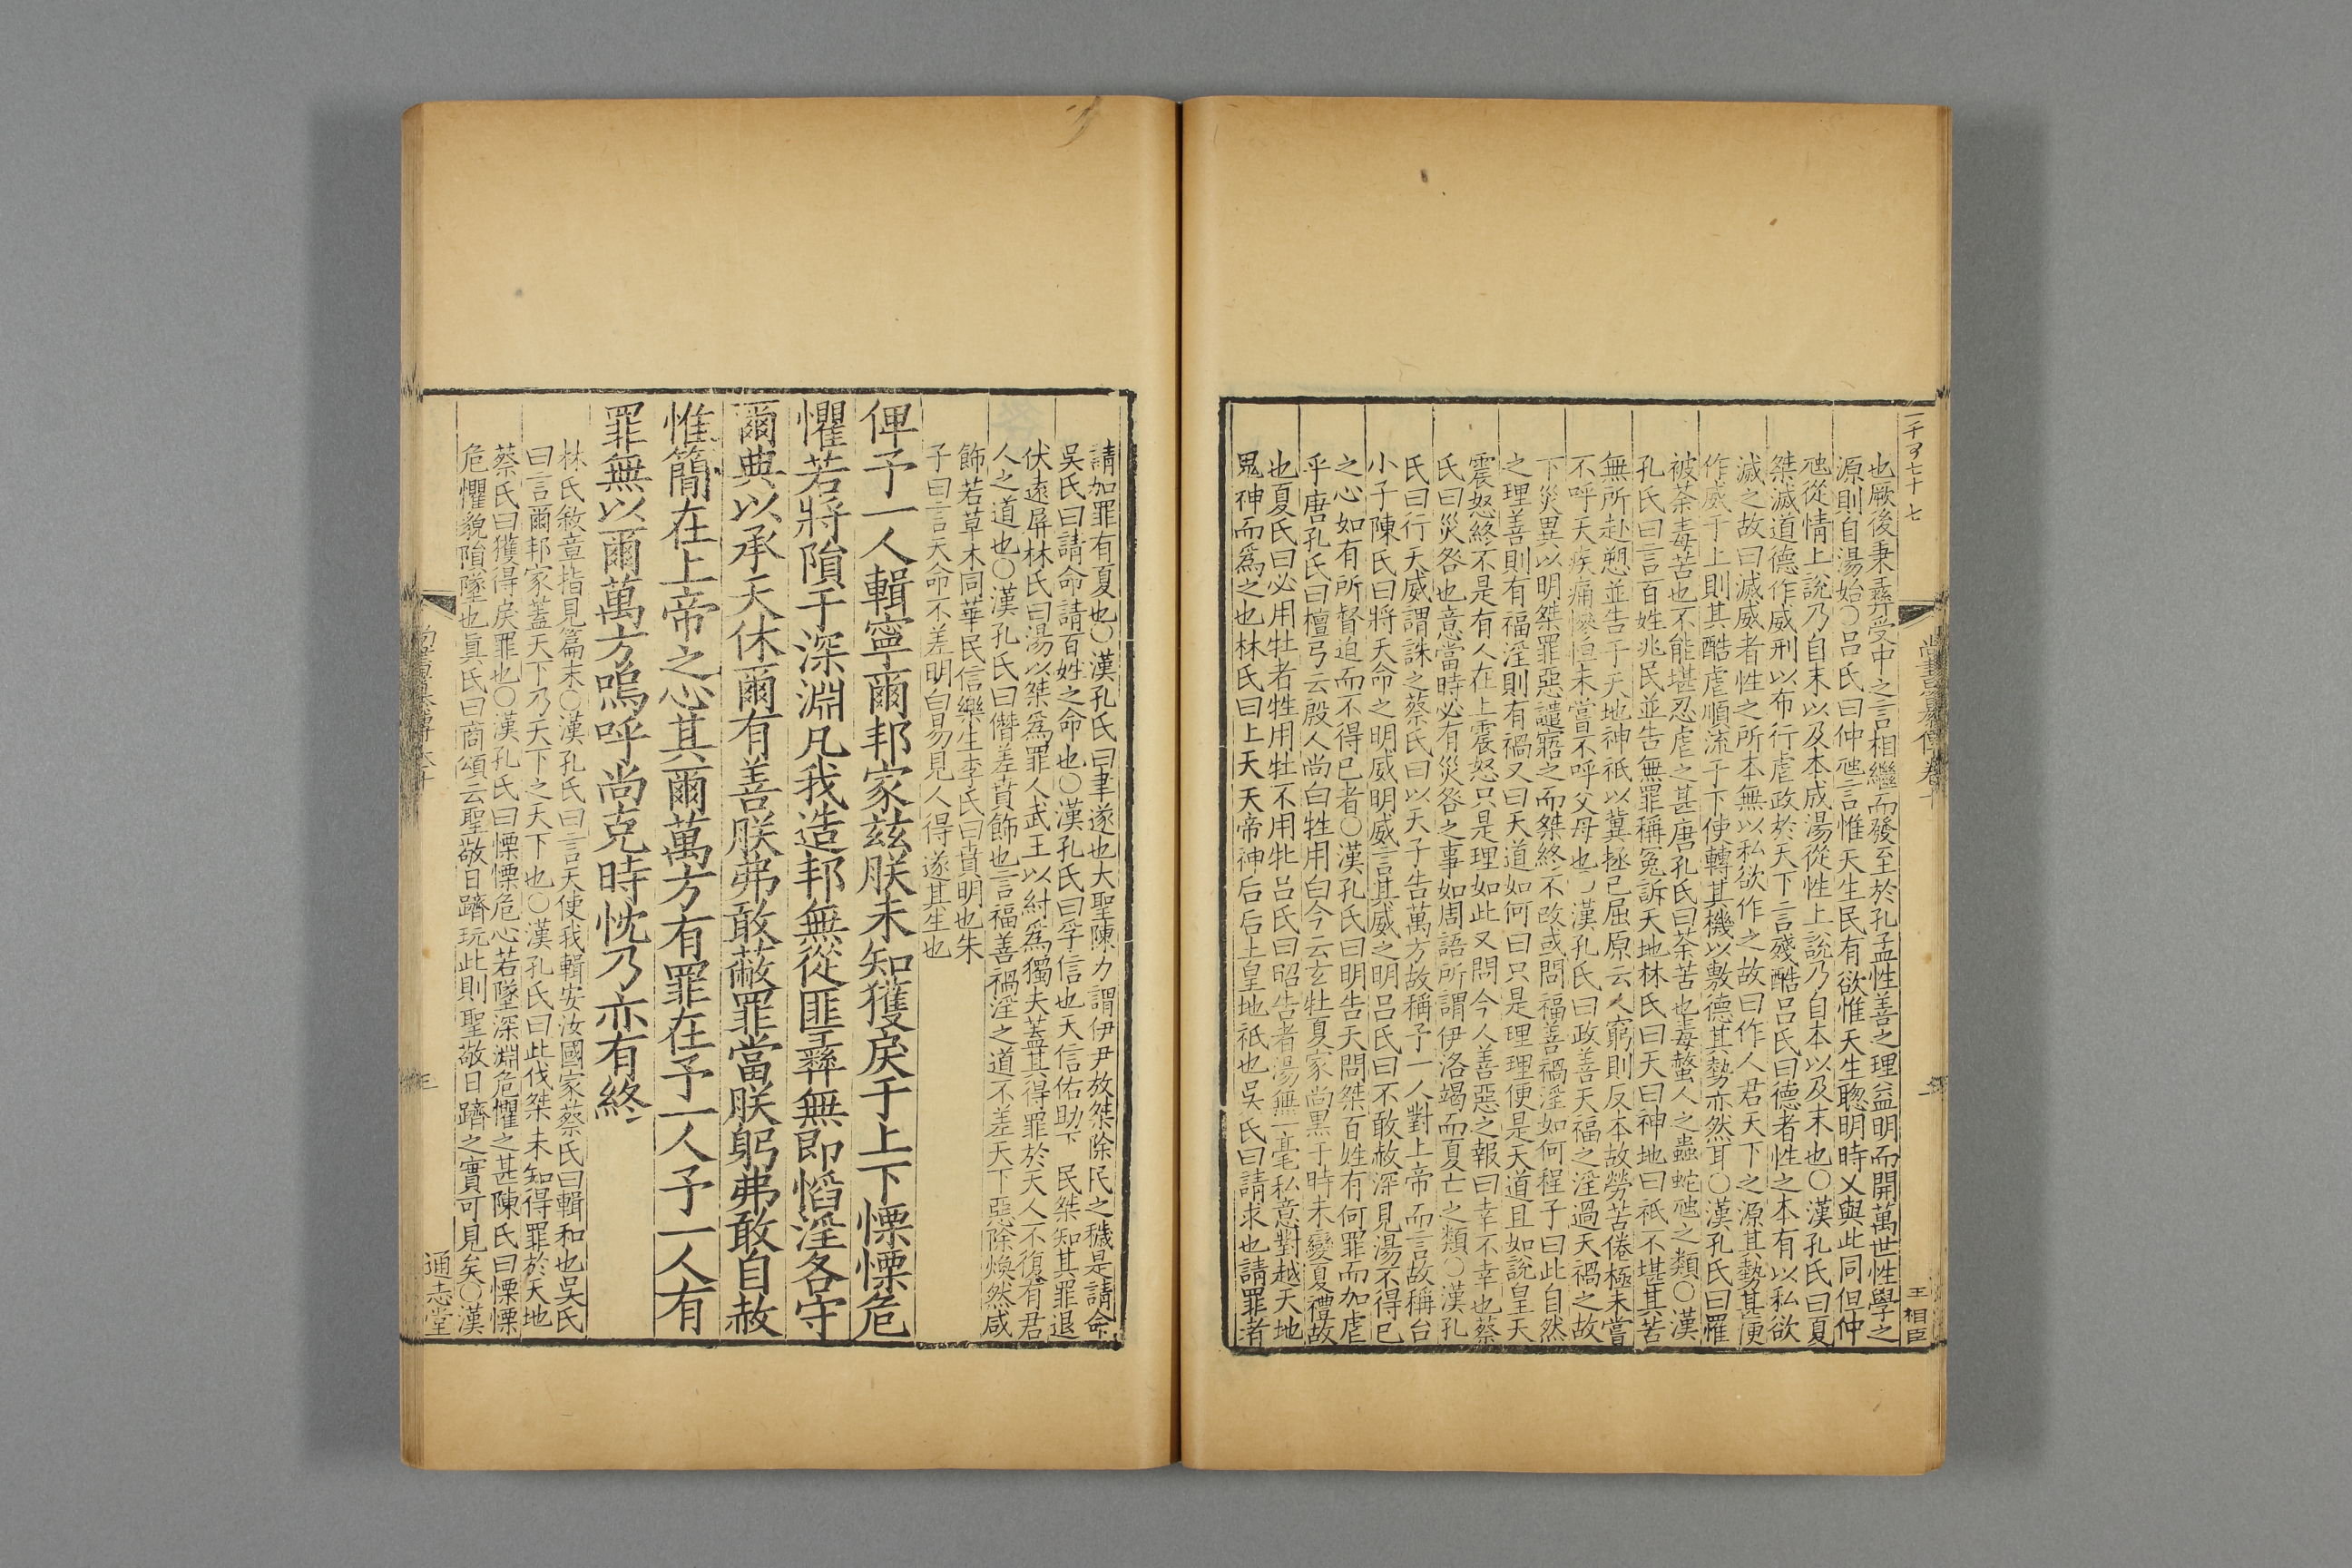 二千〇七十七
尚書纂傳卷十
王相臣
也厥後秉彞受中之言相繼而發至於孔孟性善之理益明而開萬世性學之
源則自湯始○呂氏曰仲虺言惟天生民有欲惟天生聰明時乂與此同但仲
虺從情上說乃自末以及本成湯從性上說乃自本以及末也○漢孔氏曰夏
桀滅道德作威刑以布行虐政於天下言殘酷呂氏曰德者性之本有以私欲
滅之故曰滅威者性之所本無以私欲作之故曰作人君天下之源其勢甚便
作威于上則其酷虐順流于下使轉其機以敷德其勢亦然耳○漢孔氏曰罹
被荼毒苦也不能堪忍虐之甚唐孔氏曰荼苦也毒螫人之蟲蛇虺之類○漢
孔氏曰言百姓兆民並告無罪稱冤訴天地林氏曰天曰神地曰祇不堪其苦
無所赴愬並告于天地神祇以冀拯己屈原云人窮則反本故勞苦倦極未嘗
不呼天疾痛慘怛未嘗不呼父母也○漢孔氏曰政善天福之淫過天禍之故
下災異以明桀罪惡譴寤之而桀終不改或問福善禍淫如何程子曰此自然
之理善則有福淫則有禍又曰天道如何曰只是理理便是天道且如說皇天
震怒終不是有人在上震怒只是理如此又問今人善惡之報曰幸不幸也蔡
氏曰災咎也意當時必有災咎之事如周語所謂伊洛竭而夏亡之類○漢孔
氏曰行天威謂誅之蔡氏曰以天子告萬方故稱予一人對上帝而言故稱台
小子陳氏曰將天命之明威明威言其威之明呂氏曰不敢赦深見湯不得已
之心如有所督迫而不得已者○漢孔氏曰明告天問桀百姓有何罪而加虐
乎唐孔氏曰檀弓云殷人尚白牲用白今云玄牡夏家尚黑于時未變夏禮故
也夏氏曰必用牡者牲用牡不用牝呂氏曰昭告者湯無一毫私意對越天地
鬼神而爲之也林氏曰上天天帝神后后土皇地祇也吳氏曰請求也請罪者
請加罪有夏也○漢孔氏曰聿遂也大聖陳力謂伊尹放桀除民之穢是請命
吳氏曰請命請百姓之命也○漢孔氏曰孚信也天信佑助下民桀知其罪退
伏遠屏林氏曰湯以桀爲罪人武王以紂爲獨夫蓋其得罪於天人不復有君
人之道也○漢孔氏曰僭差賁飾也言福善禍淫之道不差天下惡除煥然咸
飾若草木同華民信樂生李氏曰賁明也朱
子曰言天命不差明白易見人得遂其生也
俾予一人輯寧爾邦家兹朕未知獲戾于上下慄慄危
懼若將隕于深淵凡我造邦無從匪彞無即慆淫各守
爾典以承天休爾有善朕弗敢蔽罪當朕躬弗敢自赦
惟簡在上帝之心其爾萬方有罪在予一人予一人有
罪無以爾萬方嗚呼尚克時忱乃亦有終
林氏敘章指見篇末○漢孔氏曰言天使我輯安汝國家蔡氏曰輯和也吳氏
曰言爾邦家蓋天下乃天下之天下也○漢孔氏曰此伐桀未知得罪於天地
蔡氏曰獲得戾罪也○漢孔氏曰慄慄危心若墜深淵危懼之甚陳氏曰慄慄
危懼貌隕墜也眞氏曰商頌云聖敬日躋玩此則聖敬日躋之實可見矣○漢
三
通志堂